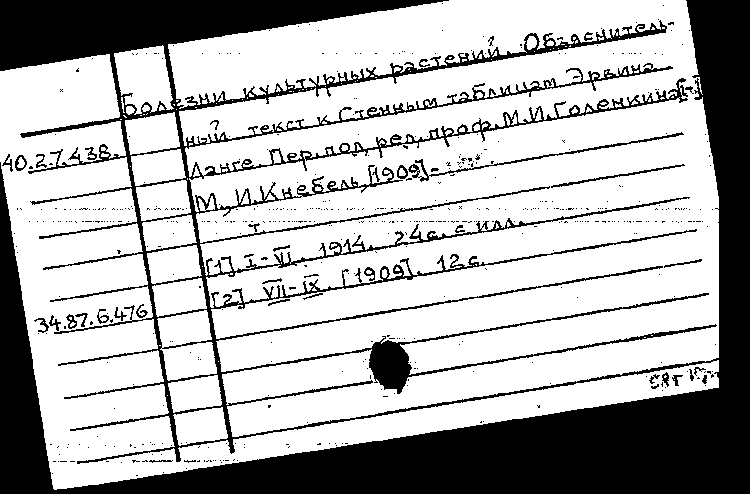 Болезни культурных растений. Объяснитель-
ный текст к Стенным таблицам Эрвина
40.27.438. Ланге. Пер. под ред. проф. М.И. Голенкина
М., И. Кнебель, [1909]-
т.
[1]. I-VI. 1914. 24 с. с илл.
[2]. VII-IX. [1909]. 12 с.
34.87.6.476